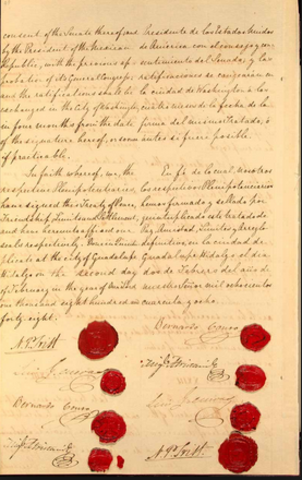 consent of the Senate thereof; and
by the President of the Mexican
Republic, with the previous ap-
probation of its General Congress;
and the ratifications shall be
exchanged in the City of Washington,
in four months from the date
of the signature hereof, or sooner
if practicable.
In faith whereof, we, the
respective Plenipotentiaries,
have signed this Treaty of Peace,
Friendship, Limits and Settlement,
and have hereunto affixed our
seals respectively. Done in Quintu-
plicate at the city of Guadalupe
Hidalgo on the second day
of February in the year of
one thousand eight hundred and
forty eight.
N. P. Trist
Luis G. Cuevas
Bernardo Couto
Migl Atristain
Presidente de los Estados Unidos
de America, con el consejo y con-
sentimiento del Senado; y las
ratificaciones se cangearán en
la ciudad de Washington á los
cuatro meses de la fecha de la
firma del mismo Tratado, ó
antes si fuere posible.
En fe de lo cual, nosotros
los respectivos Plenipotenciarios
hemos firmado y sellado por
quintuplicado este tratado de
Paz, Amistad, Limites y Arreglo
definitivo, en la ciudad de
Guadalupe Hidalgo el dia
dos de Febrero del año de
mil ochocientos
cuarenta y ocho.
Bernardo Couto
Migl Atristain
Luis G. Cuevas
N. P. Trist